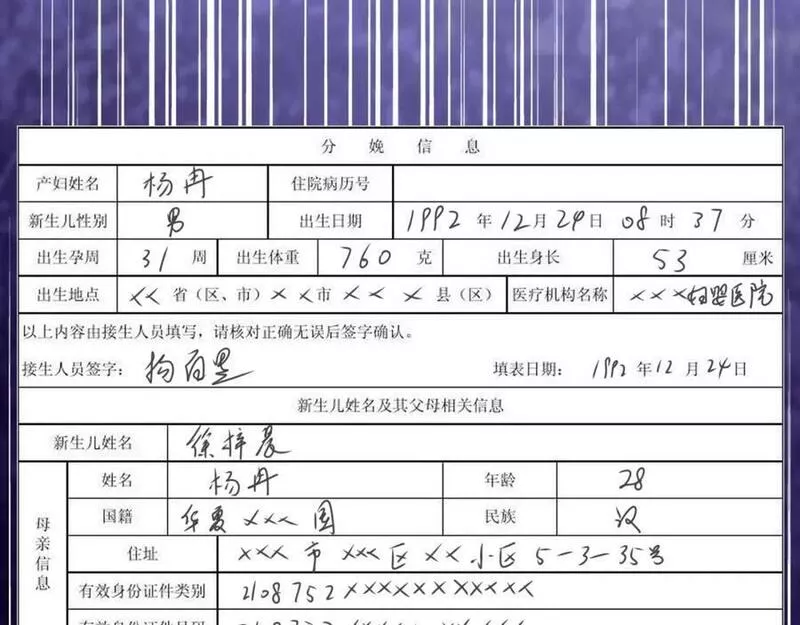 分娩信息
产妇姓名 杨冉 住院病历号
新生儿性别 男 出生日期 1992 年 12 月 24 日 08 时 37 分
出生孕周 31 周 出生体重 760 克 出生身长 53 厘米
出生地点 ×× 省（区、市）××市 ×× × 县（区） 医疗机构名称 ×××妇婴医院
以上内容由接生人员填写，请核对正确无误后签字确认。
接生人员签字： 填表日期： 1992 年 12 月 24 日
新生儿姓名及其父母相关信息
新生儿姓名 徐梓晨
母亲信息
姓名 杨冉 年龄 28
国籍 华夏 ××× 国 民族 汉
住址 ×××市 ×××区 ××小区 5-3-35号
有效身份证件类别 2108752××××××××××××